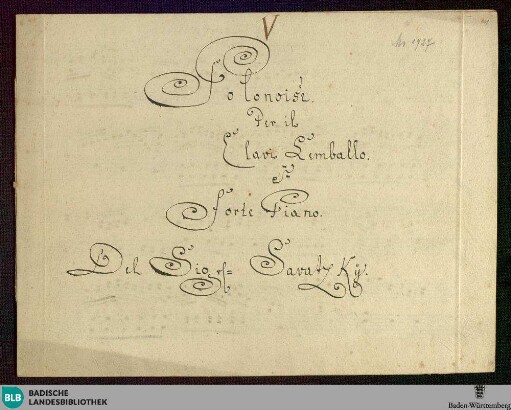 V
Ms 1727
Polonoise.
Per il
Clavi Cembalo.
e
Forte Piano.
Del Sigr= Savatzky.
BLB BADISCHE
LANDESBIBLIOTHEK
Baden-Württemberg